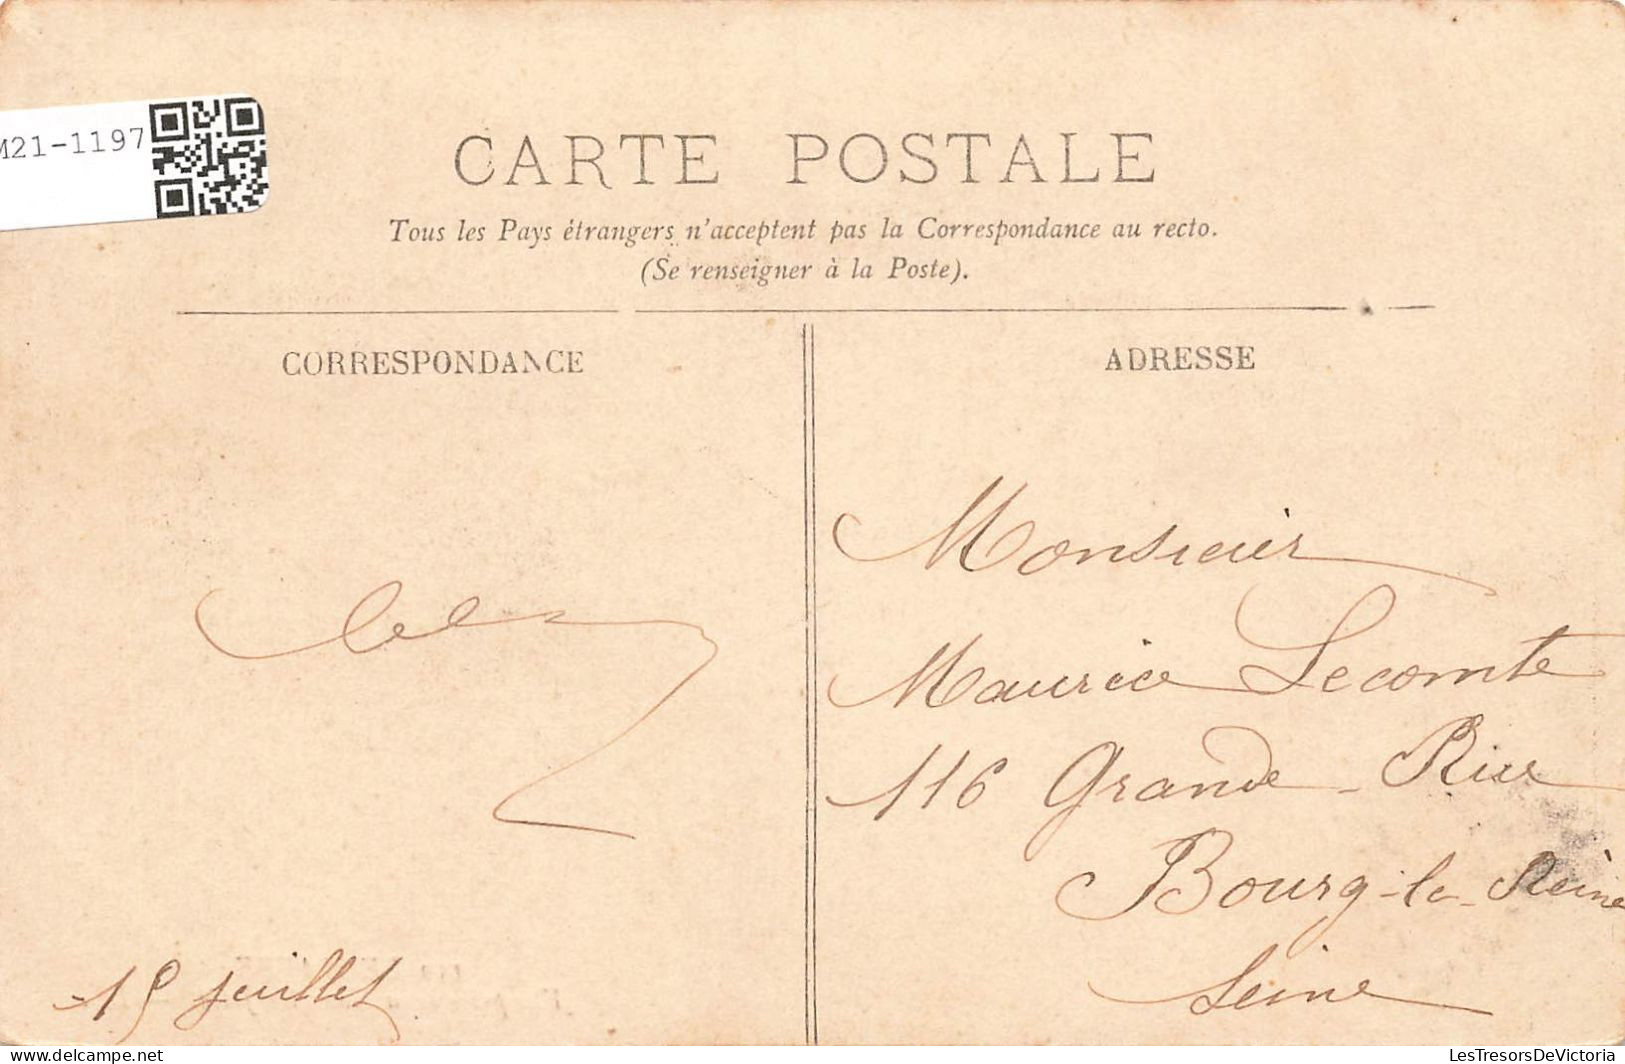 M21-1197
CARTE POSTALE
Tous les Pays étrangers n'acceptent pas la Correspondance au recto.
(Se renseigner à la Poste).
CORRESPONDANCE
15 juillet
ADRESSE
Monsieur
Maurice Lecomte
116 Grande-Rue
Bourg-la-Reine
Seine
www.delcampe.net
LesTresorsDeVictoria